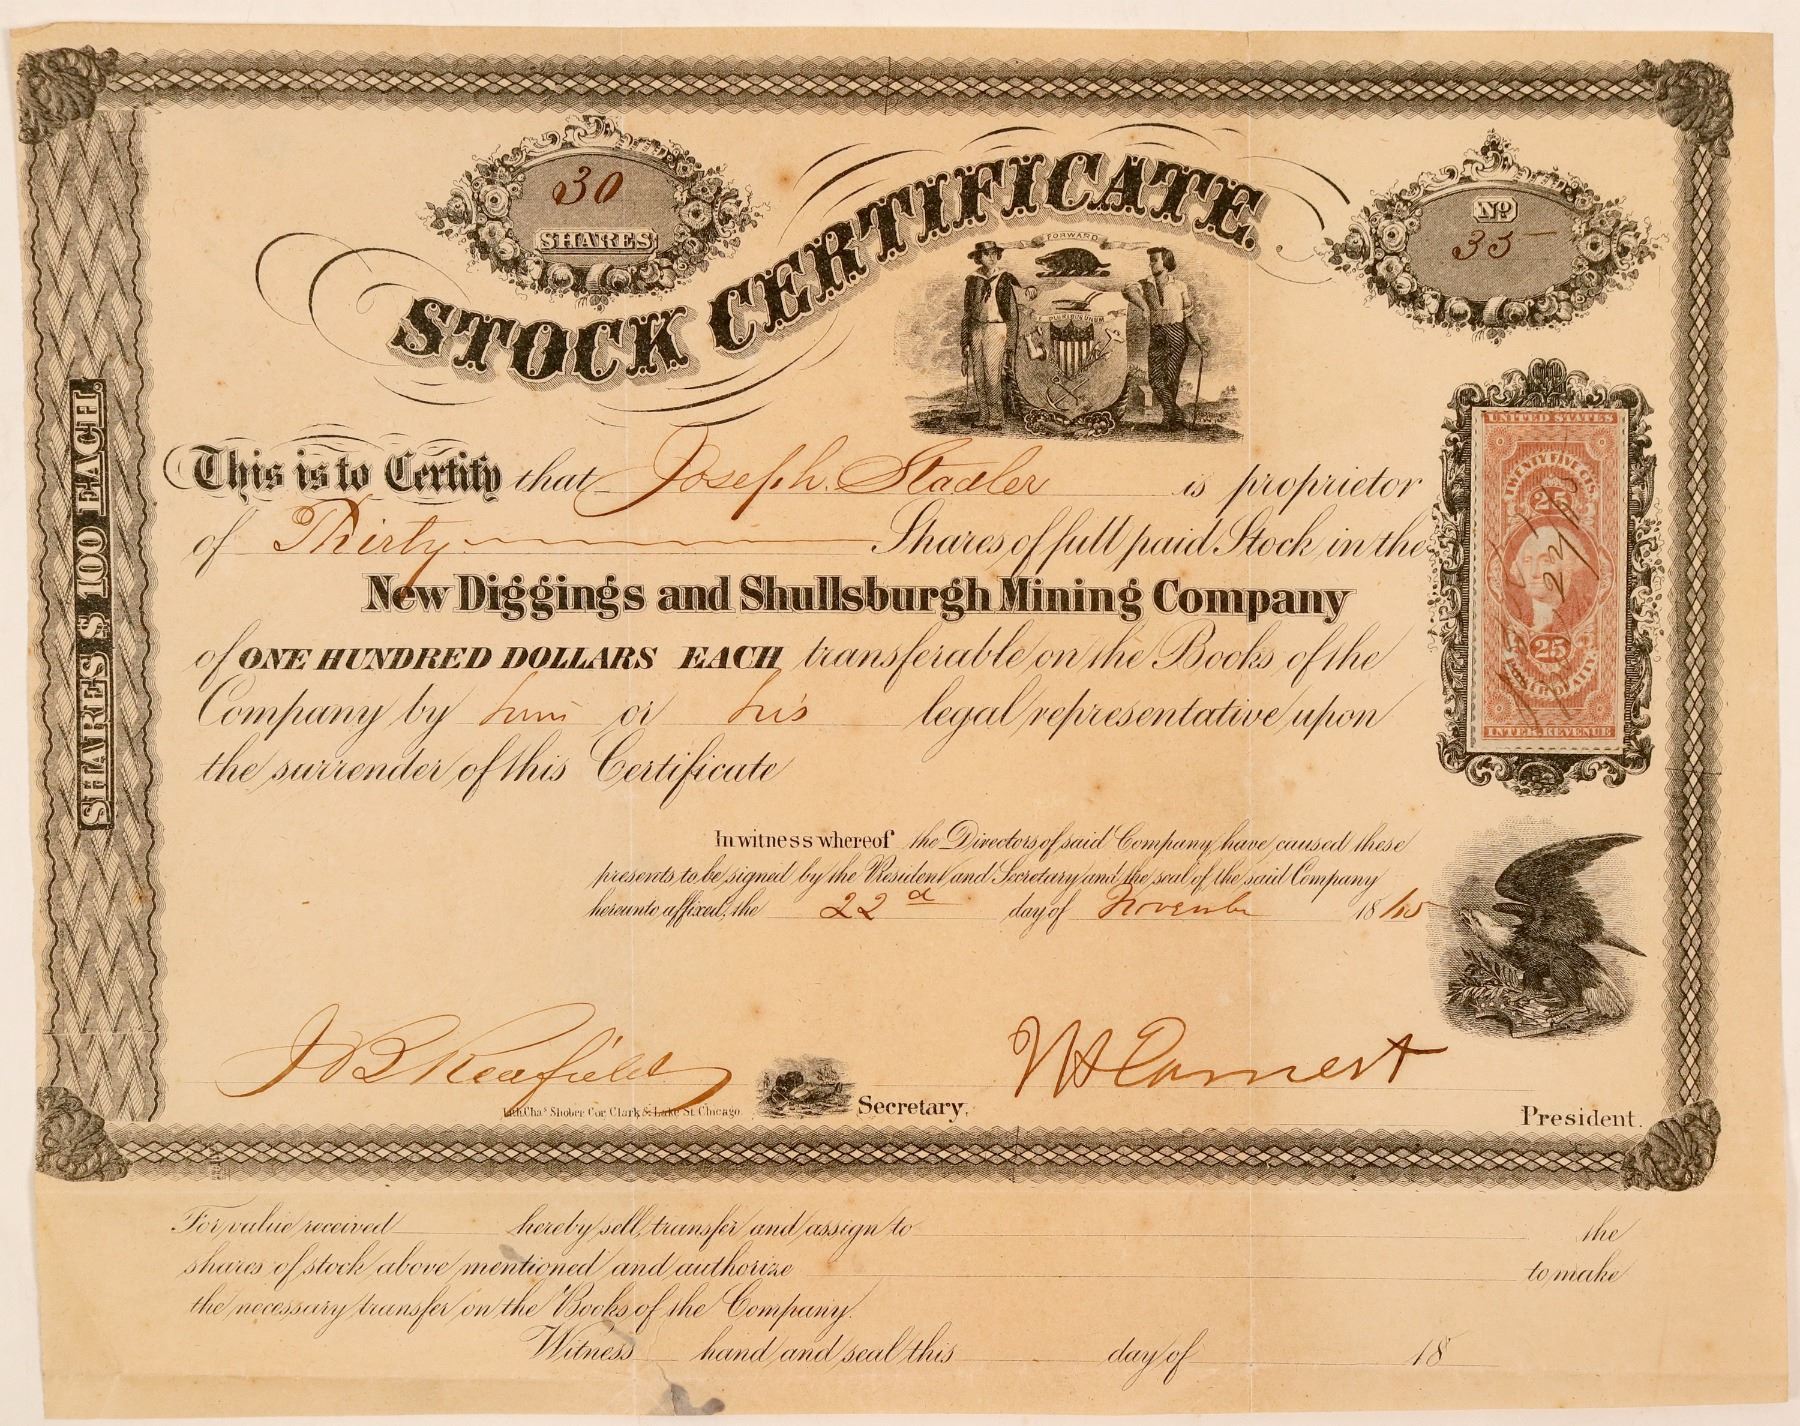 30
SHARES
STOCK CERTIFICATE.
FORWARD
E PLURIBUS UNUM
Nº
35
SHARES $100 EACH.
UNITED STATES
TWENTY FIVE CTS.
25
25
POWER OF ATT'Y.
INTER. REVENUE
This is to Certify that Joseph. Stadler is proprietor
of Thirty Shares of full paid Stock in the
New Diggings and Shullsburgh Mining Company
of ONE HUNDRED DOLLARS EACH transferable on the Books of the
Company by him or his legal representative upon
the surrender of this Certificate
In witness whereof the Directors of said Company have caused these
presents to be signed by the President and Secretary and the seal of the said Company
hereunto affixed, the 22d day of November 1865
J B Secretary.
W H Earnest President.
Lith. Chas Shober Cor. Clark & Lake St. Chicago
For value received hereby sell, transfer and assign to the
shares of stock above mentioned and authorize to make
the necessary transfer on the Books of the Company.
Witness hand and seal this day of 18